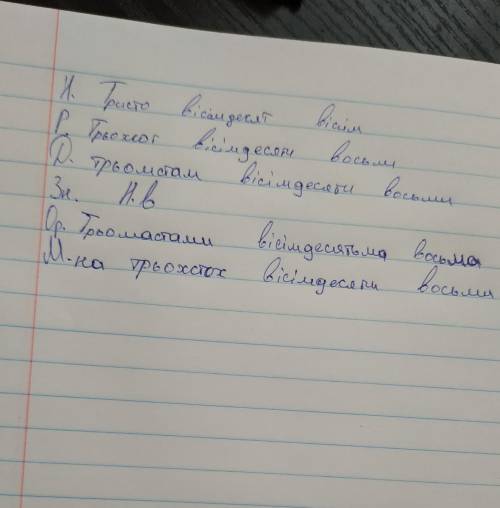 Н. Триста вісімдесят вісім
Р. Трьохсот вісімдесяти восьми
Д. трьомстам вісімдесяти восьми
Зн. Н.в
Ор. Трьомастами вісімдесятьма восьма
М. на трьохстох вісімдесяти восьми